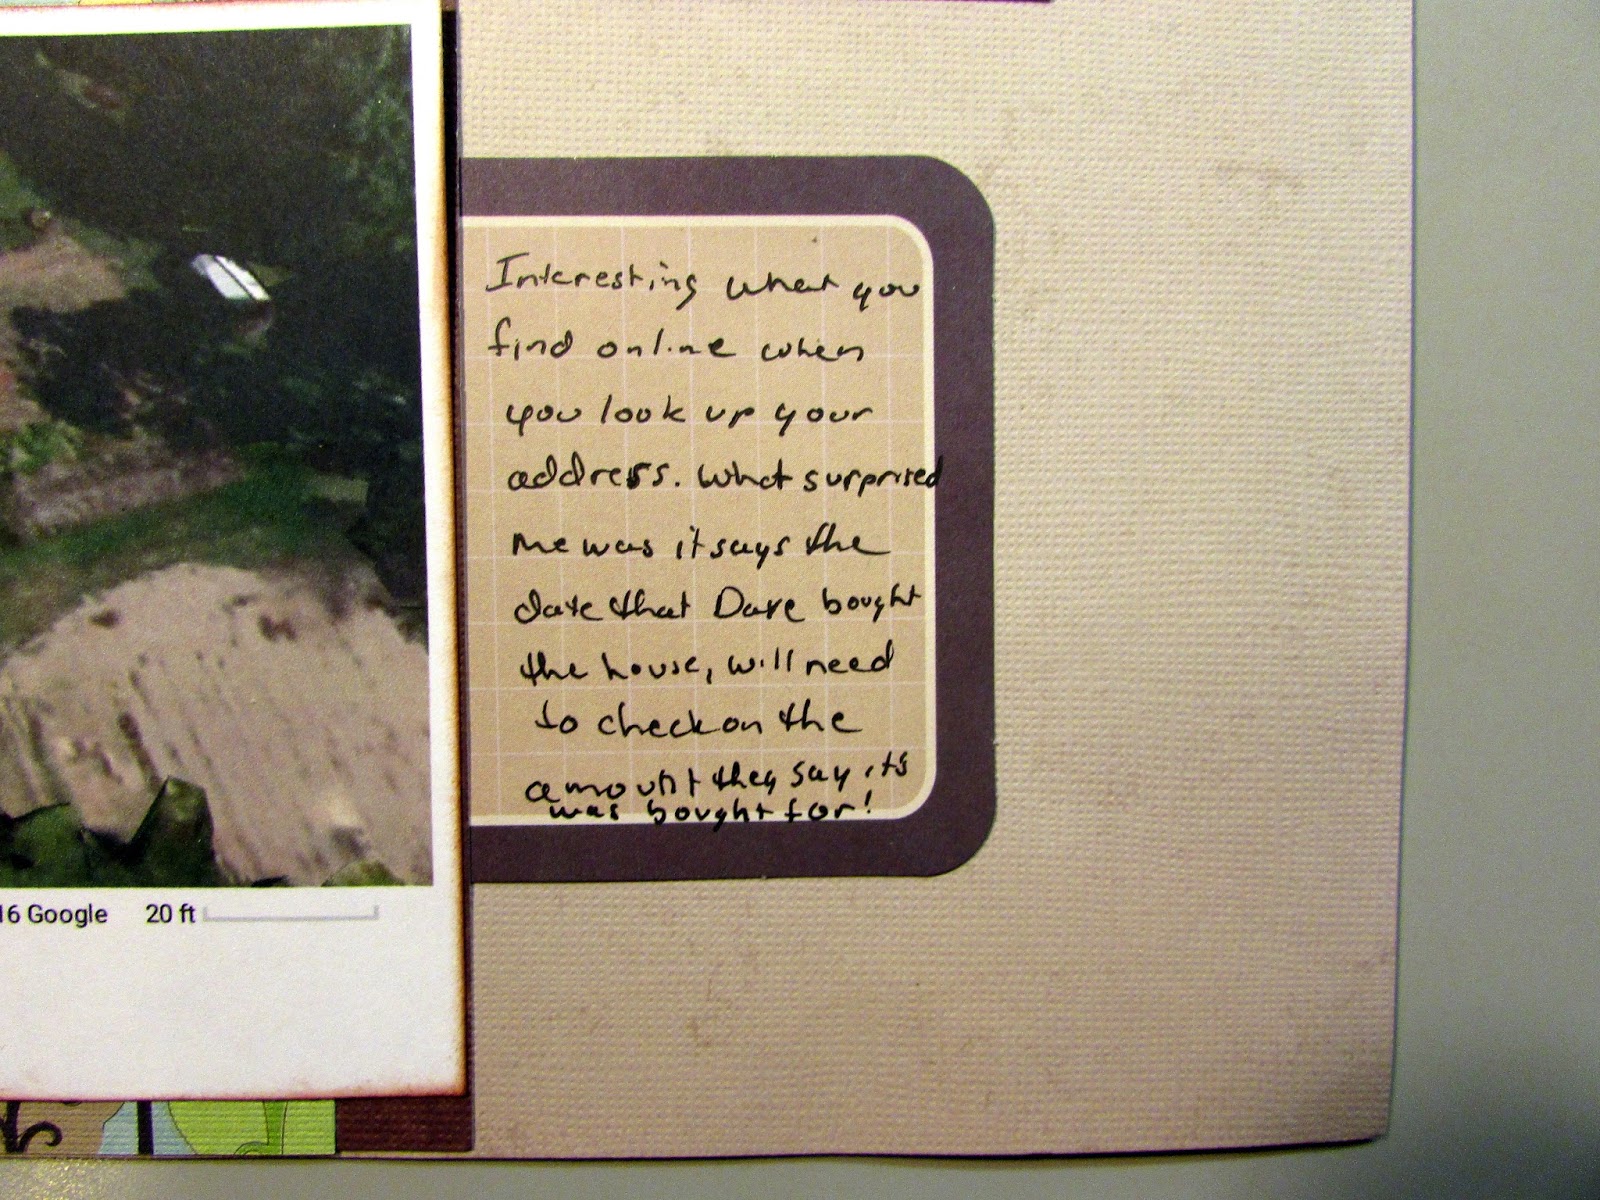 Interesting what you
find online when
you look up your
address. What surprised
me was it says the
date that Dave bought
the house, will need
to check on the
amount they say its
was bought for!
16 Google 20 ft